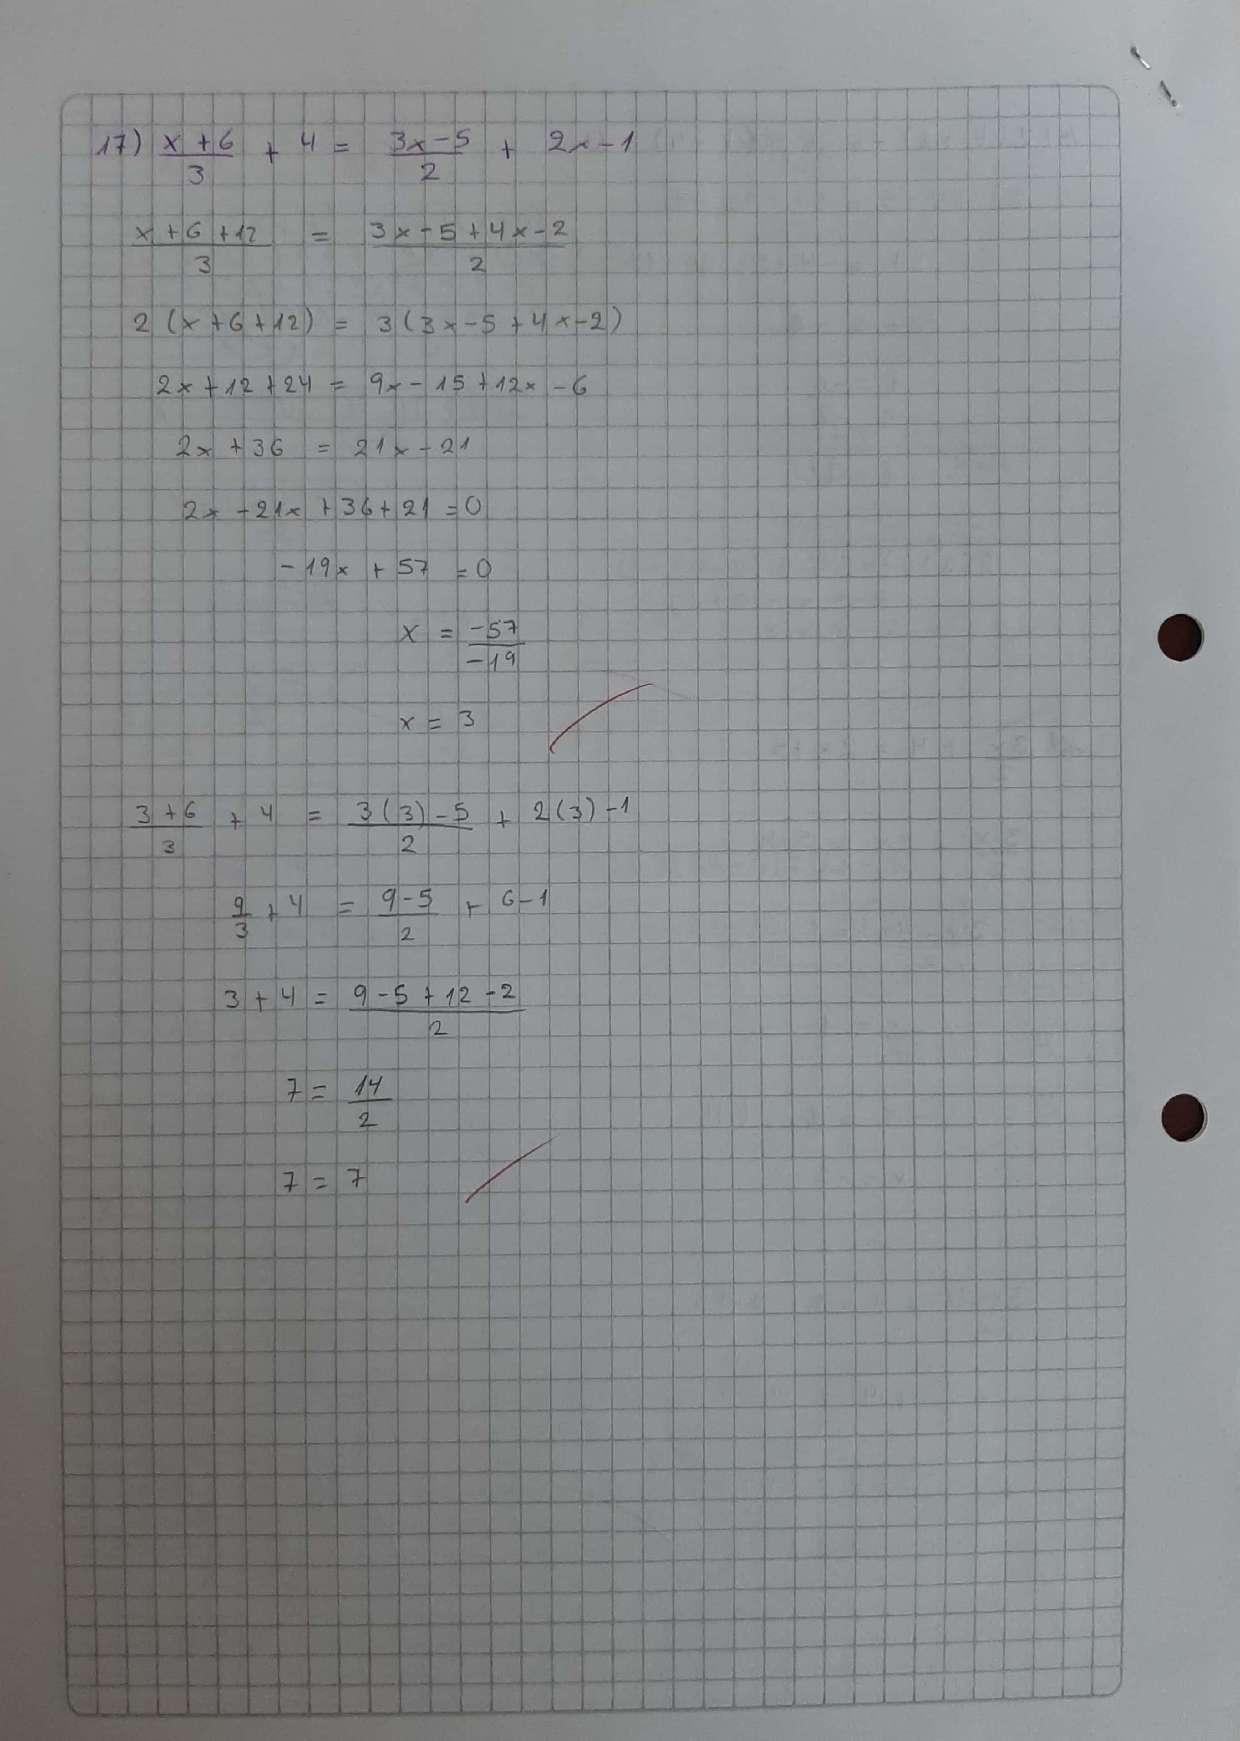 17) x+6/3 + 4 = 3x-5/2 + 2x-1
x+6+12/3 = 3x-5+4x-2/2
2(x+6+12) = 3(3x-5+4x-2)
2x+12+24 = 9x-15+12x-6
2x+36 = 21x-21
2x-21x+36+21=0
-19x+57=0
x = -57/-19
x = 3
3+6/3 + 4 = 3(3)-5/2 + 2(3)-1
9/3 + 4 = 9-5/2 + 6-1
3+4 = 9-5+12-2/2
7 = 14/2
7 = 7